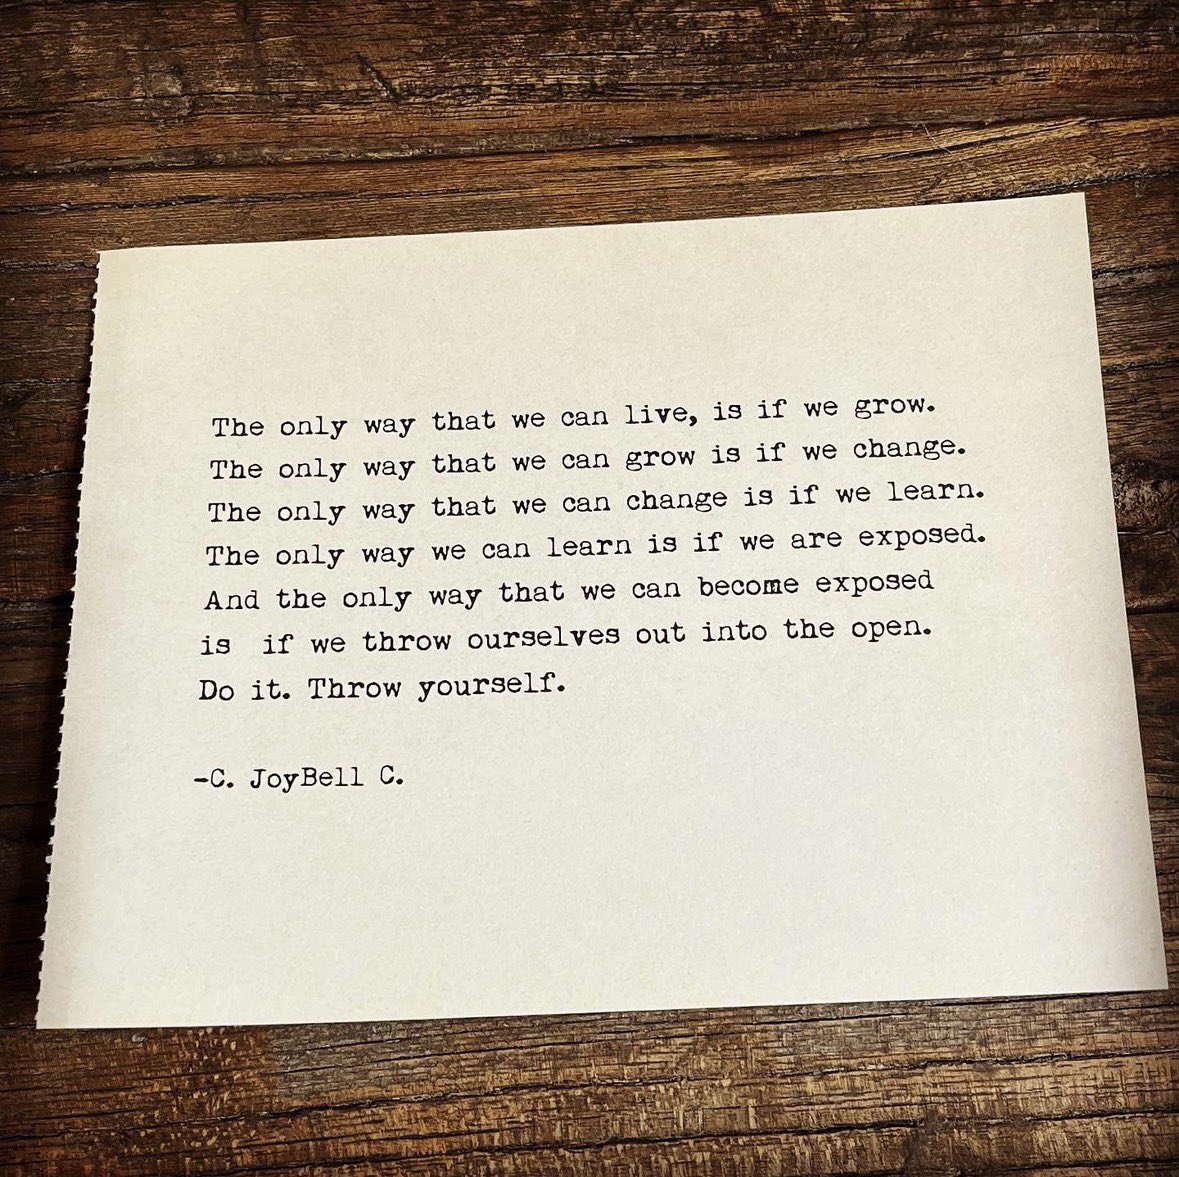 The only way that we can live, is if we grow.
The only way that we can grow is if we change.
The only way that we can change is if we learn.
The only way we can learn is if we are exposed.
And the only way that we can become exposed
is  if we throw ourselves out into the open.
Do it. Throw yourself.
-C. JoyBell C.